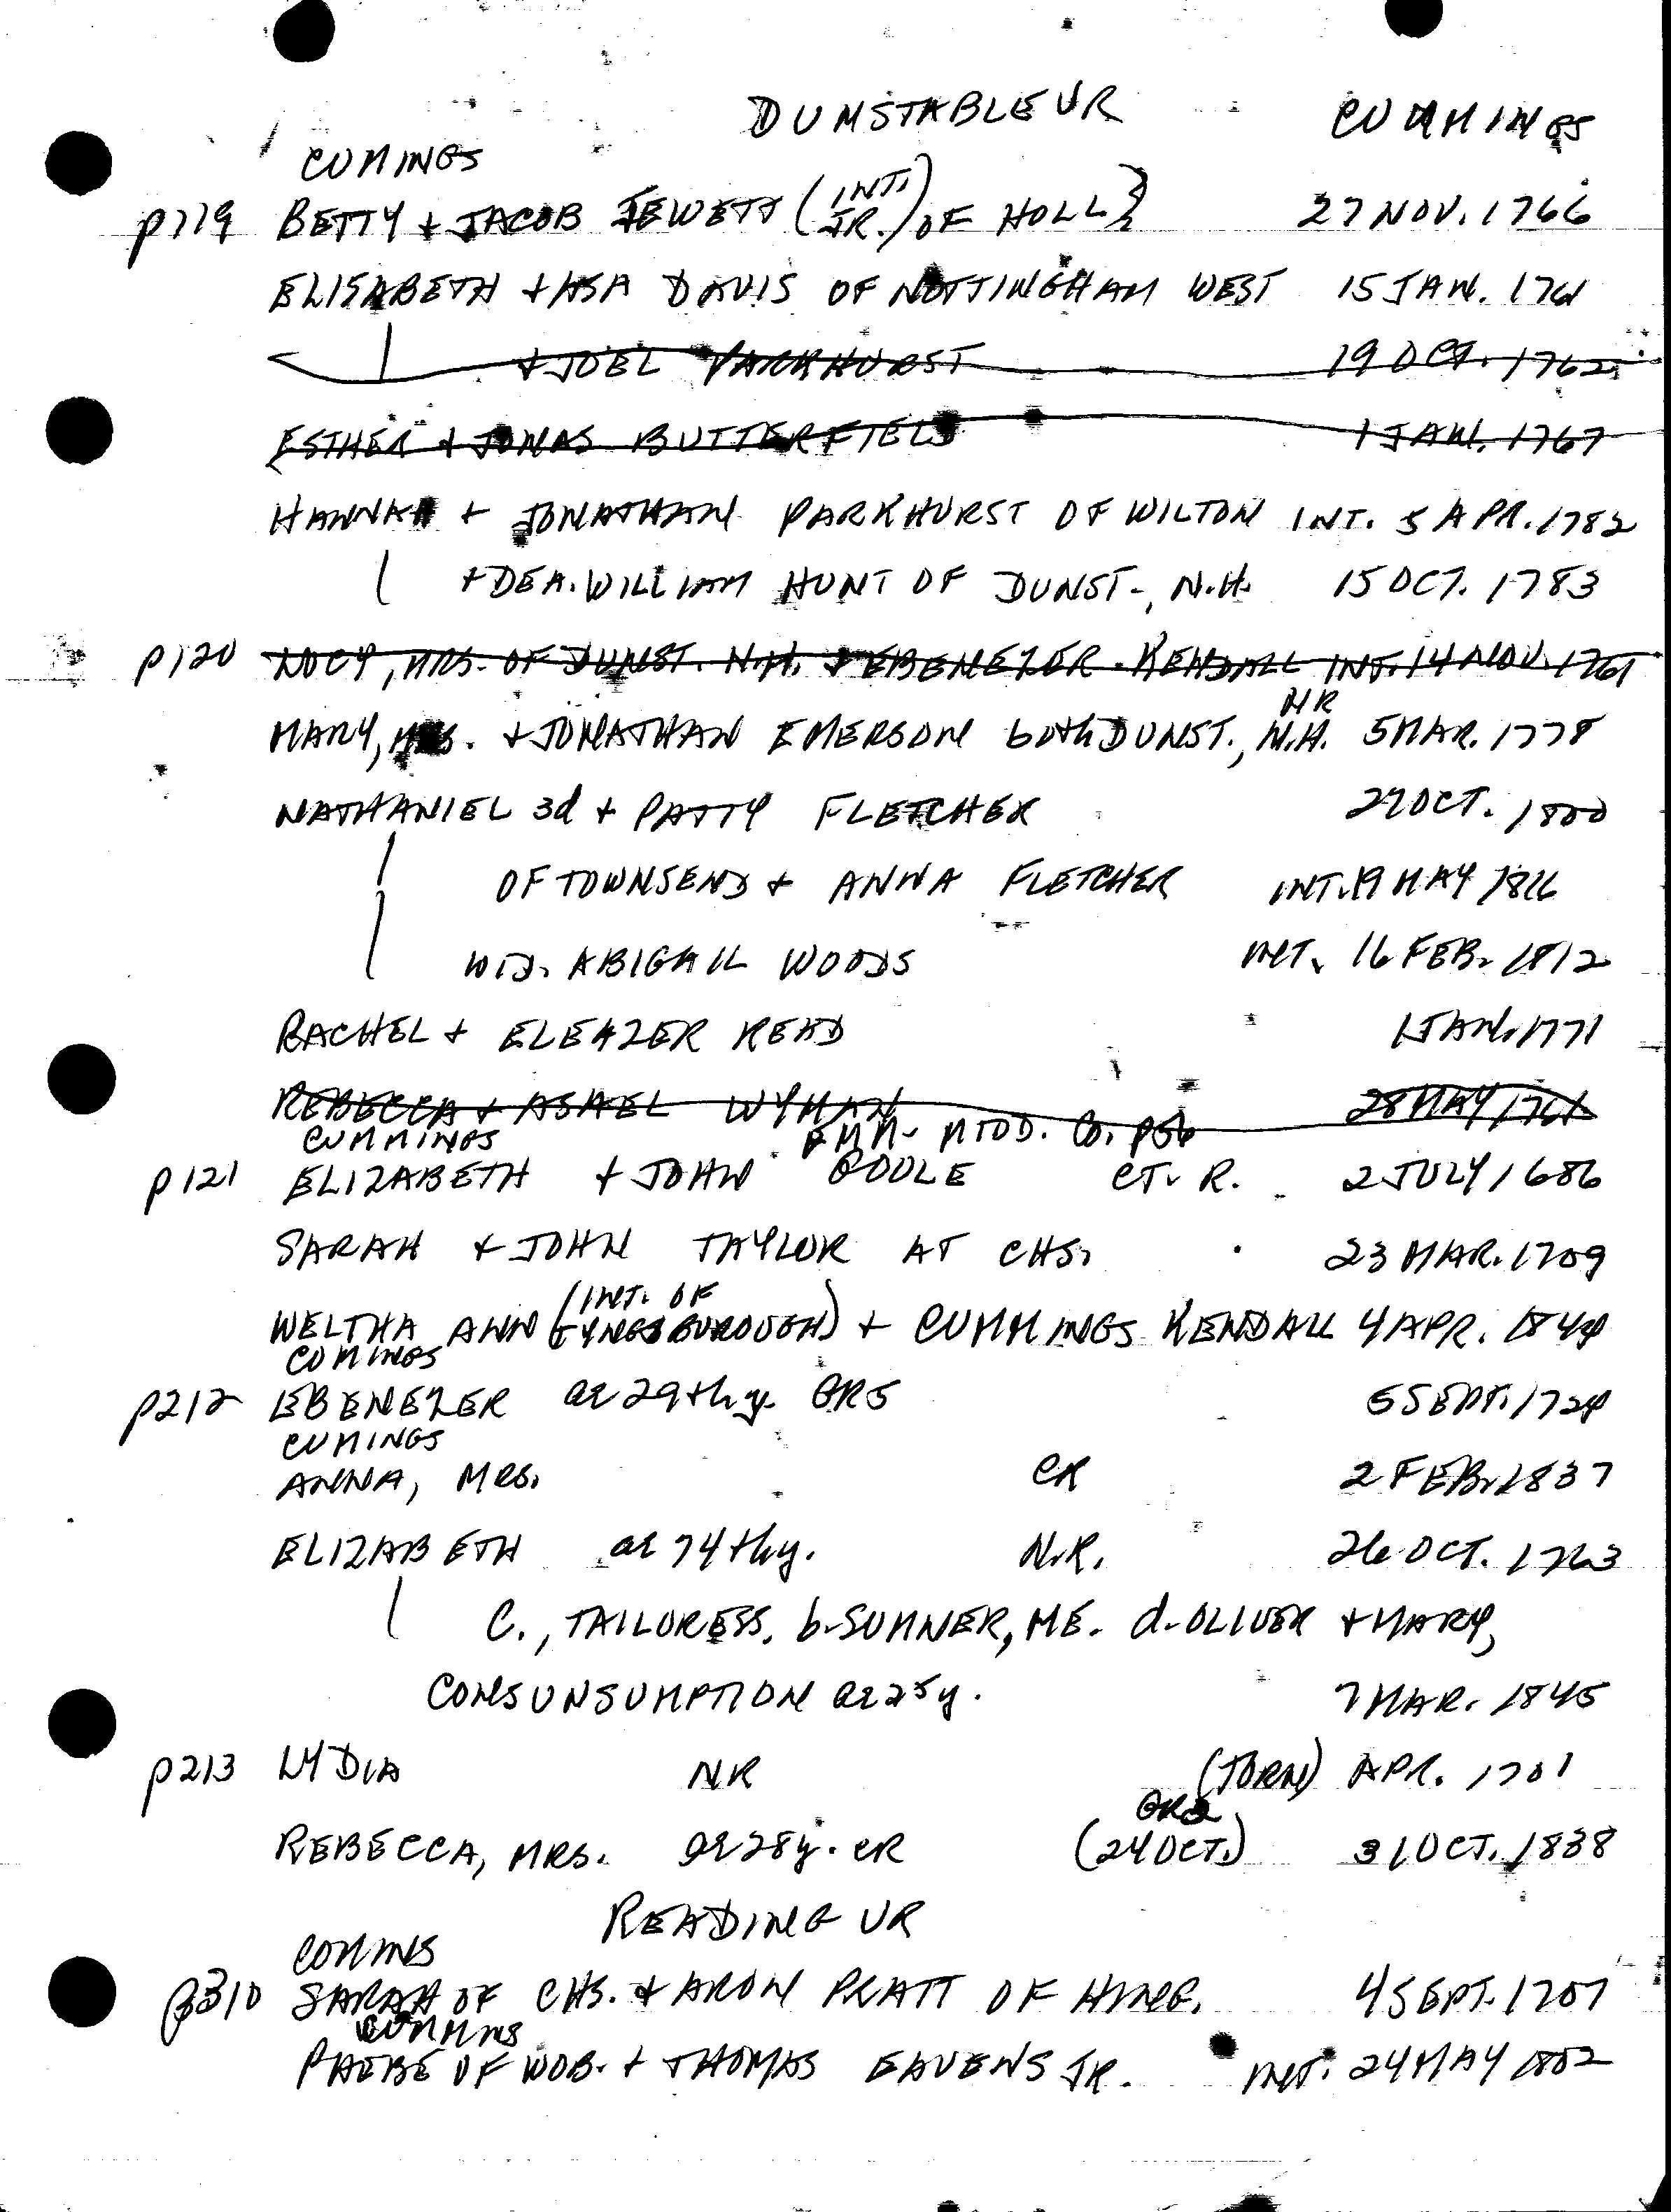 DUNSTABLE VR CUMMINGS
CUMINGS
p119 BETTY + JACOB JEWETT (INT. JR.) OF HOLL} 27 NOV. 1766
ELISABETH + ASA DAVIS OF NOTTINGHAM WEST 15 JAN. 1761
+ JOEL PARKHURST 19 OCT. 1762
ESTHER + JONAS BUTTERFIELD 1 JAN. 1767
HANNAH + JONATHAN PARKHURST OF WILTON INT. 5 APR. 1782
+ DEA. WILLIAM HUNT OF DUNST., N.H. 15 OCT. 1783
p120 LUCY, MRS. OF DUNST. N.H. + EBENEZER KENDALL INT. 14 NOV. 1761
NR
MARY, MRS. + JONATHAN EMERSON both DUNST., N.H. 5 MAR. 1778
NATHANIEL 3d + PATTY FLETCHER OCT. 1800
OF TOWNSEND + ANNA FLETCHER INT. 19 MAY 1816
WID. ABIGAIL WOODS INT. 16 FEB. 1812
RACHEL + ELEAZER READ 1 JAN. 1771
REBECCA + ASAHEL WYMAN 28 MAY 1761
CUMMINGS MIDD. CO. p56
p121 ELIZABETH + JOHN GOOLE CT. R. 2 JULY 1686
SARAH + JOHN TAYLOR AT CHS. 23 MAR. 1709
(INT. OF
WELTHA ANN TYNGSBUROUGH) + CUMMINGS KENDALL 4 APR. 1844
CUMINGS
p212 EBENEZER ae 29th y. GR5 5 SEPT. 1724
CUMINGS
ANNA, MRS. CR 2 FEB. 1837
ELIZABETH ae 74th y. N.R. 26 OCT. 1763
C., TAILORESS. b. SUMNER, ME. d. OLIVER + MARY,
CONSUNSUMPTION ae 25y. 7 MAR. 1845
p213 LYDIA NR (TORN) APR. 1701
GR2
REBECCA, MRS. ae 28y. CR (24 OCT.) 31 OCT. 1838
READING VR
COMINS
p310 SARAH OF CHS. + ARON PRATT OF HING. 4 SEPT. 1707
CUMMINS
PHEBE OF WOB. + THOMAS EAVENS JR. INT. 24 MAY 1802